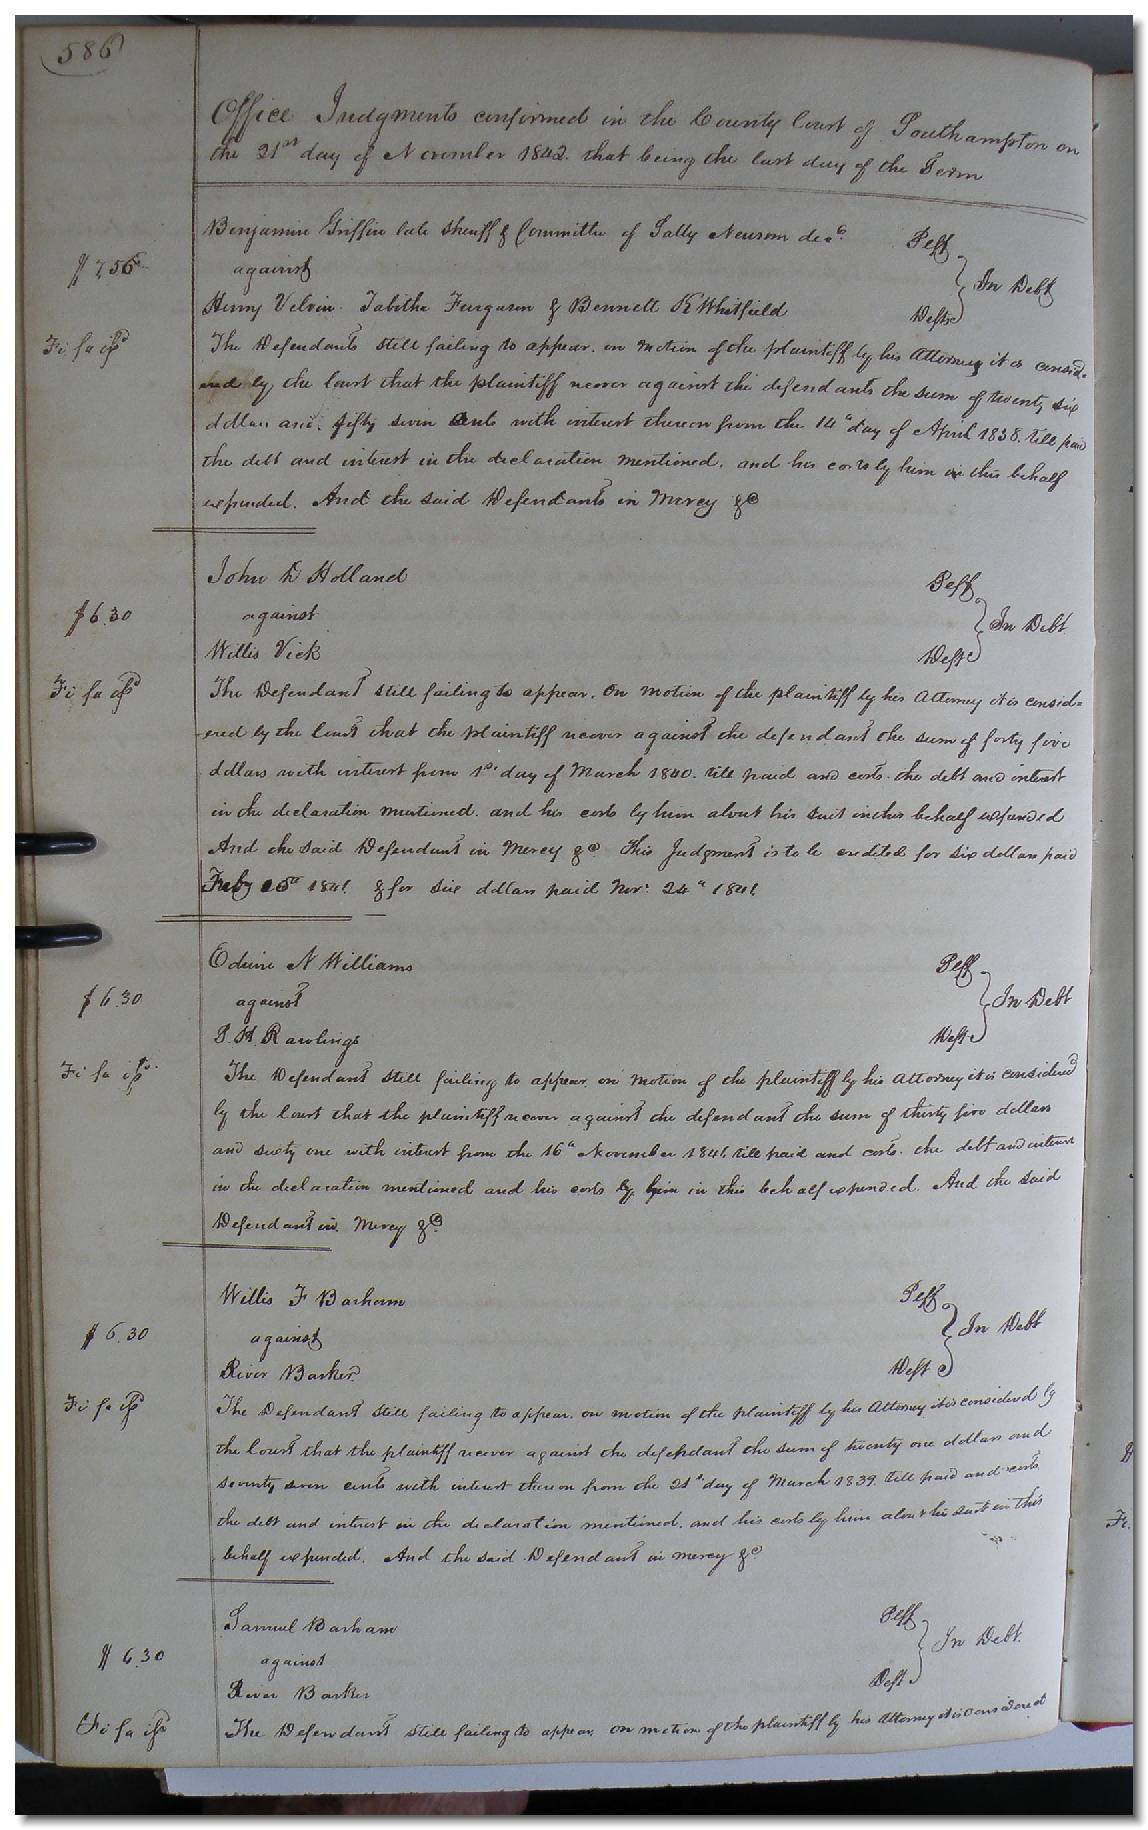 586
Office Judgments confirmed in the County Court of Southampton on
the 21st day of November 1842. that being the last day of the Term
Benjamin Griffin late Sheriff & Committee of Sally Newsom decd. Plff
$7.56
against
In Debt
Henry Velvin. Tabitha Furgason & Bennett K Whitfield Defts
Fi fa isd
The Defendants still failing to appear. on motion of the plaintiff by his Attorney it is consid=
ered by the Court that the plaintiff recover against the defendants the sum of twenty six
dollars and fifty seven Cents with interest thereon from the 14th day of April 1838. till paid
the debt and interest in the declaration mentioned. and his costs by him in this behalf
expended. And the said Defendants in Mercy &c
John D Holland Plff
$6.30
against
In Debt
Willis Vick Deft
Fi fa isd
The Defendant still failing to appear. On motion of the plaintiff by his Attorney it is consid=
ered by the Court that the plaintiff recover against the defendant the sum of forty five
dollars with interest from 1st. day of March 1840. till paid and costs. the debt and interest
in the declaration mentioned. and his costs by him about his suit in this behalf expended
And the said Defendant in Mercy &c This Judgment is to be credited for six dollars paid
1841. & for six dollars paid Nov: 24th 1841
Edwin N Williams Plff
$6.30
against
In Debt
P. H. Rawlings Deft
Fi fa isd.
The Defendant still failing to appear. on motion of the plaintiff by his Attorney it is considered
by the Court that the plaintiff recover against the defendant the sum of thirty five dollars
and sixty one with interest from the 16th November 1841. till paid and costs. the debt and interest
in the declaration mentioned and his costs by him in this behalf expended. And the said
Defendant in Mercy &c.
Willis F Barham Plff
$6.30
against
In Debt
River Barker Deft
Fi fa isd
The Defendant still failing to appear. on motion of the plaintiff by his Attorney it is considered by
the Court that the plaintiff recover against the defendant the sum of twenty one dollars and
seventy seven cents with interest thereon from the 21st day of March 1839. till paid and costs.
the debt and interest in the declaration mentioned. and his costs by him about his suit in this
behalf expended. And the said Defendant in mercy &c
Samuel Barham Plff
$6.30
against
In Debt.
River Barker Deft
Fi fa isd
The Defendant still failing to appear. on motion of the plaintiff by his Attorney it is considered